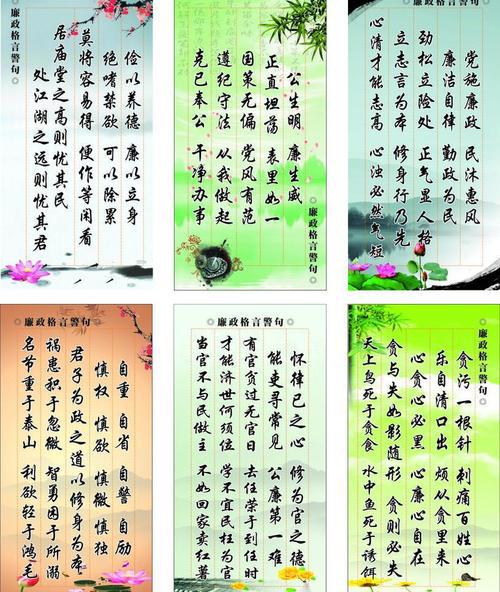 廉政格言警句
俭以养德 廉以立身
绝嗜禁欲 可以除累
莫将容易得 便作等闲看
居庙堂之高则忧其民
处江湖之远则忧其君
廉政格言警句
公生明 廉生威
正直坦荡 表里如一
国策无偏 党风有范
遵纪守法 从我做起
克己奉公 干净办事
廉政格言警句
党施廉政 民沐惠风
廉洁自律 勤政为民
劲松立险处 正气显人格
立志言为本 修身行乃先
心清才能志高 心浊必然气短
廉政格言警句
自重 自省 自警 自励
慎权 慎欲 慎微 慎独
君子为政之道以修身为本
祸患积于忽微 智勇困于所溺
名节重于泰山 利欲轻于鸿毛
廉政格言警句
怀律己之心 修为官之德
能吏寻常见 公廉第一难
有官贪过无官日 去任荣于到任时
才能济世何须位 学不宜民枉为官
当官不与民做主 不如回家卖红薯
廉政格言警句
贪污一根针 刺痛百姓心
乐自清口出 烦从贪里来
心贪心必黑 心廉心自在
贪与失如影随形 贪则必失
天上鸟死于贪食 水中鱼死于诱饵